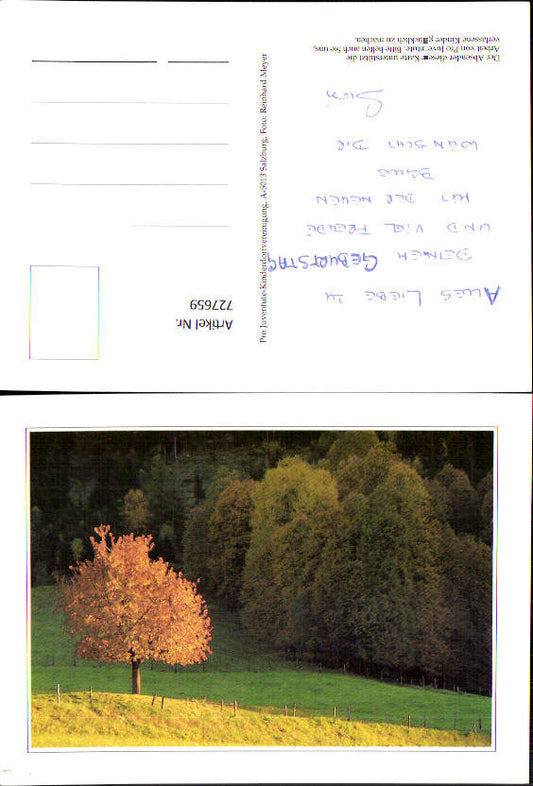 ALLES LIEBE ZU
DEINEM GEBURTSTAG
UND VIEL FREUDE
MIT DER NEUEN
WÜNSCHT DIR
Pro Juventute-Kinderdorfvereinigung, A-5013 Salzburg. Foto: Reinhard Meyer
Der Absender dieser Karte unterstützt die
Arbeit von Pro Juventute. Bitte helfen auch Sie uns,
verlassene Kinder glücklich zu machen.
Artikel Nr.
727659